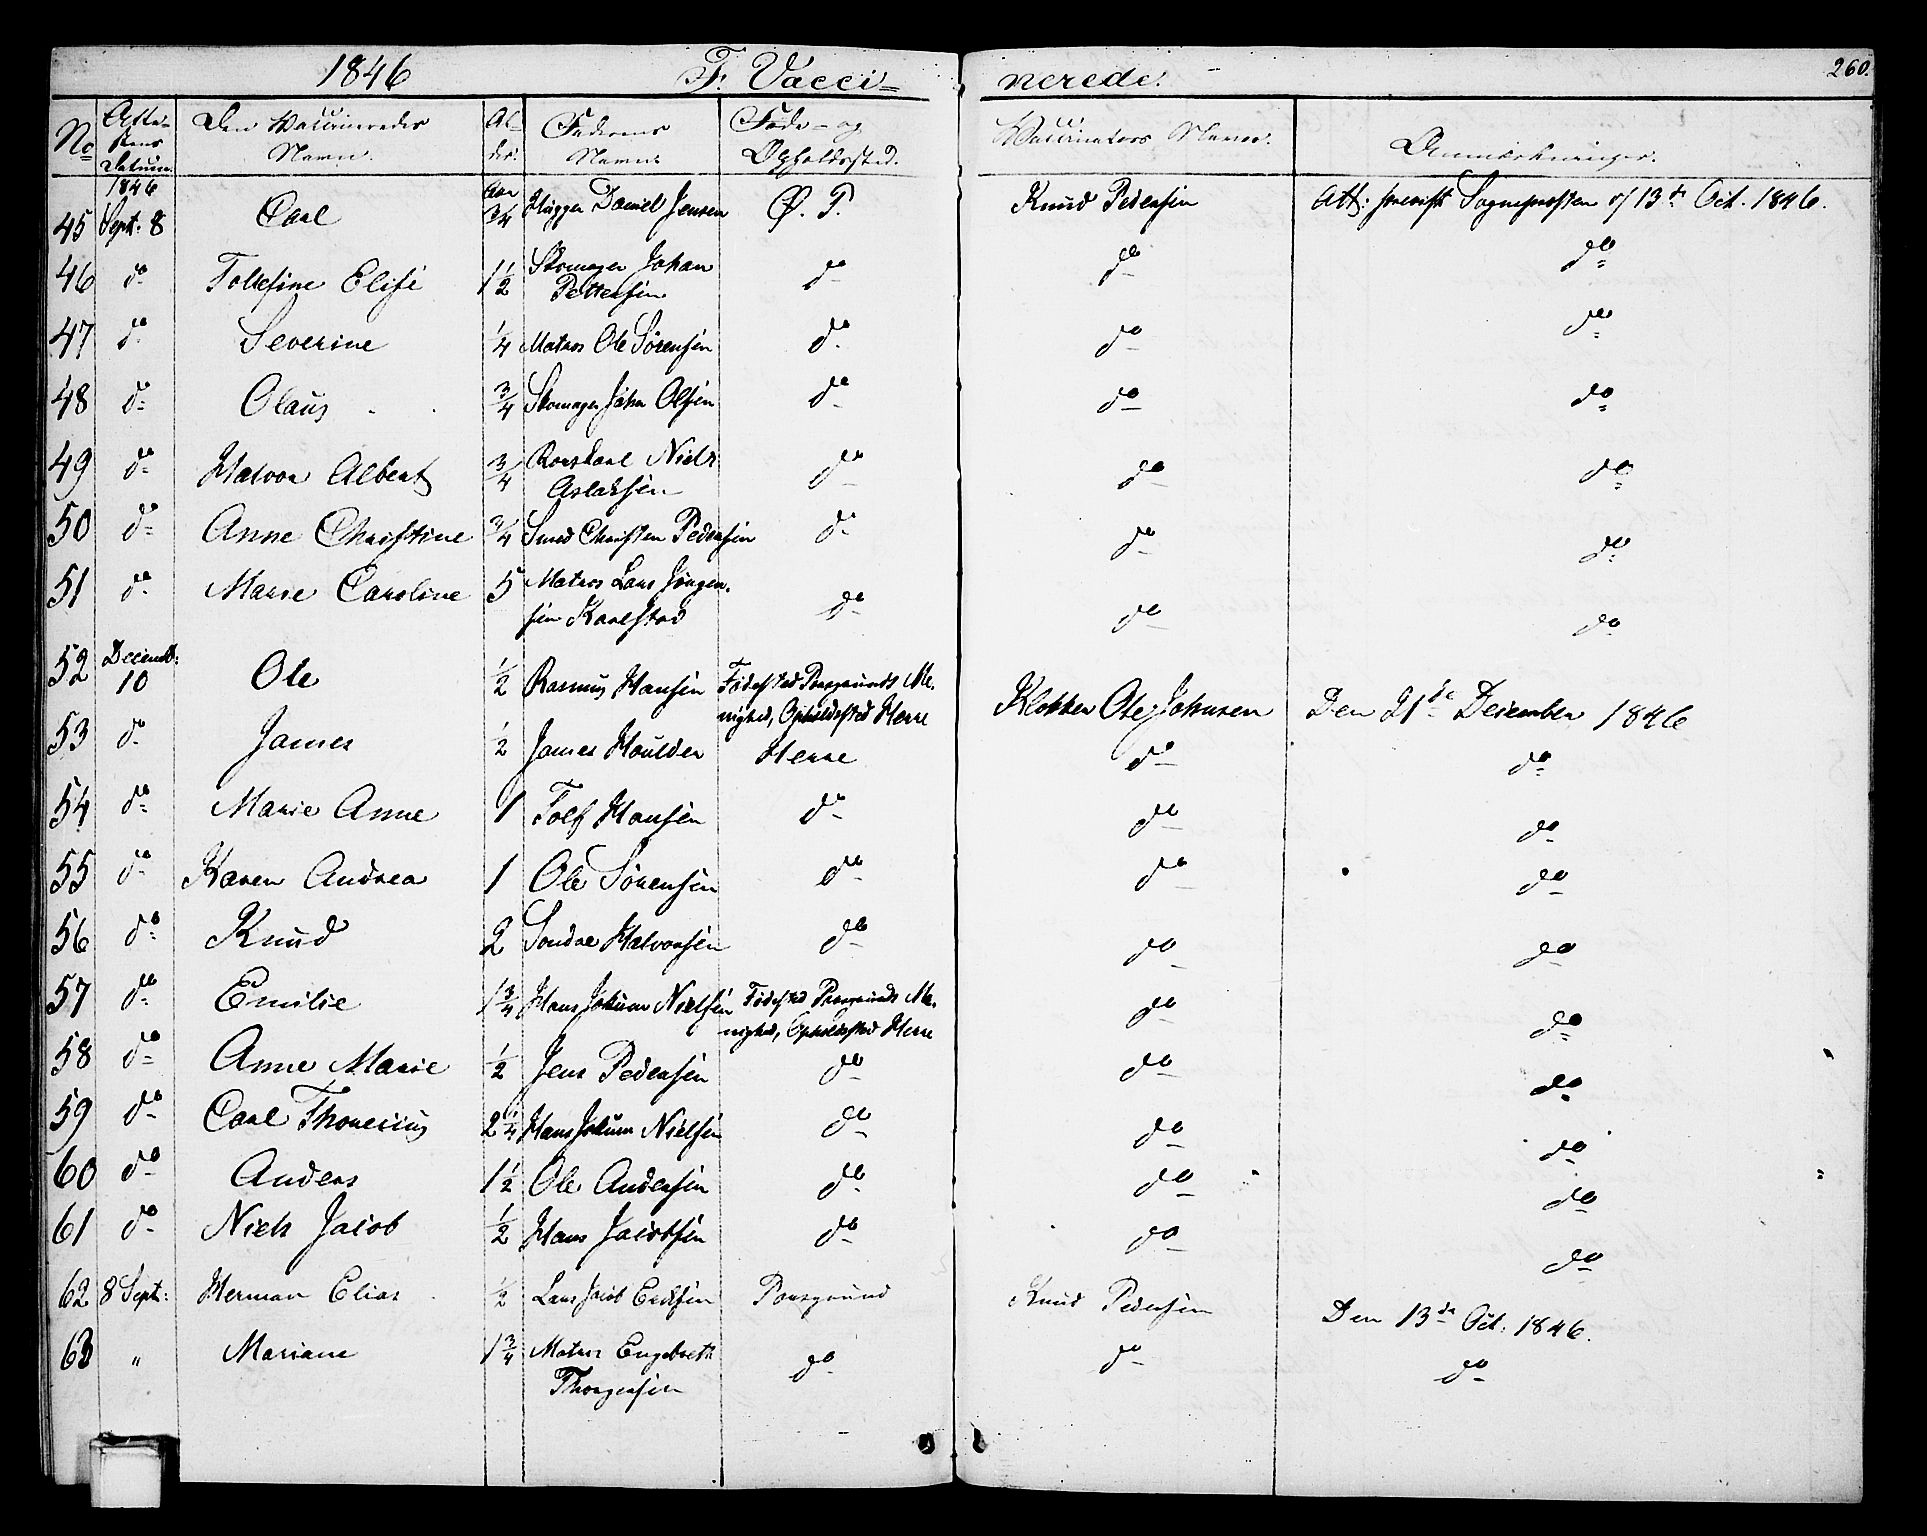 1846 F. Vacci= nerede. 260.
No Atte= stens Datum. Den Vaccineredes Navn. Al= der. Faderens Navn. Føde- og Opholdssted. Vaccinators Navn. Anmærkninger.
1846 Aar
45 Sept: 8 Carl 3/4 Hugger Daniel Jensen Ø. P. Knud Pedersen Att: foreviist Sognepresten d/ 13de Oct. 1846.
46 do Tollefine Elise 1 1/2 Skomager Johan Pettersen do do do
47 do Severine 1/4 Matros Ole Sørensen do do do
48 do Olaus 3/4 Skomager Johan Olsen do do do
49 do Halvor Albert 3/4 Rorskarl Niels Aslaksen do do do
50 do Anne Christine 3/4 Smed Christen Pedersen do do do
51 do Marie Caroline 5 Matros Lars Jörgen- sen Karlstad do do do
52 Decemb: 10 Ole 1/2 Rasmus Hansen Fødested Porsgrunds Me- nighed, Opholdssted Herre Klokker Ole Johnsen Den 21de December 1846
53 do James 1/2 James Houlder Herre do do
54 do Marie Anne 1 Tolf Hansen do do do
55 do Karen Andrea 1 Ole Sørensen do do do
56 do Knud 2 Sondre Halvorsen do do do
57 do Emilie 1 3/4 Hans Jokum Nielsen Fødested Porsgrunds Me- nighed, Opholdssted Herre do do
58 do Anne Marie 1/2 Jens Pedersen do do do
59 do Carl Thonesius 2 1/4 Hans Jokum Nielsen do do do
60 do Anders 1 1/2 Ole Andersen do do do
61 do Niels Jacob 1/2 Hans Jacobsen do do do
62 8 Sept: Herman Elias 1/2 Lars Jacob Eriksen Porsgrund Knud Pedersen Den 13de Oct. 1846.
63 " Mariane 1 3/4 Matros Engebreth Thorgersen do do do